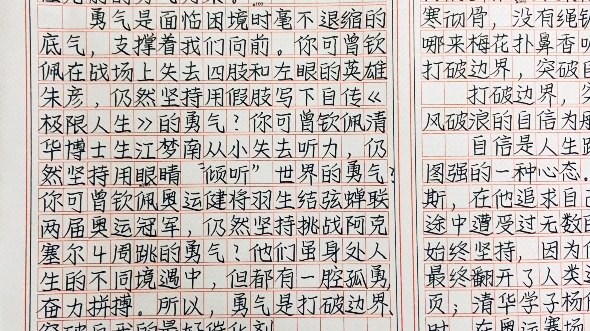 勇气是面临困境时毫不退缩的
底气，支撑着我们向前。你可曾钦
佩在战场上失去四肢和左眼的英雄
朱彦，仍然坚持用假肢写下自传《
极限人生》的勇气？你可曾钦佩清
华博士生江梦南从小失去听力，仍
然坚持用眼睛“倾听”世界的勇气？
你可曾钦佩奥运健将羽生结弦蝉联
两届奥运冠军，仍然坚持挑战阿克
塞尔4周跳的勇气？他们虽身处人
生的不同境遇中，但都有一腔孤勇，
奋力拼搏。所以，勇气是打破边界、
寒彻骨，没有绳
哪来梅花扑鼻香
打破边界，突破
打破边界，突
风破浪的自信为
自信是人生路
图强的一种心态。
斯，在他追求自己
途中遭受过无数
始终坚持，因为
最终翻开了人类
页；清华学子杨
时，在奥运赛场